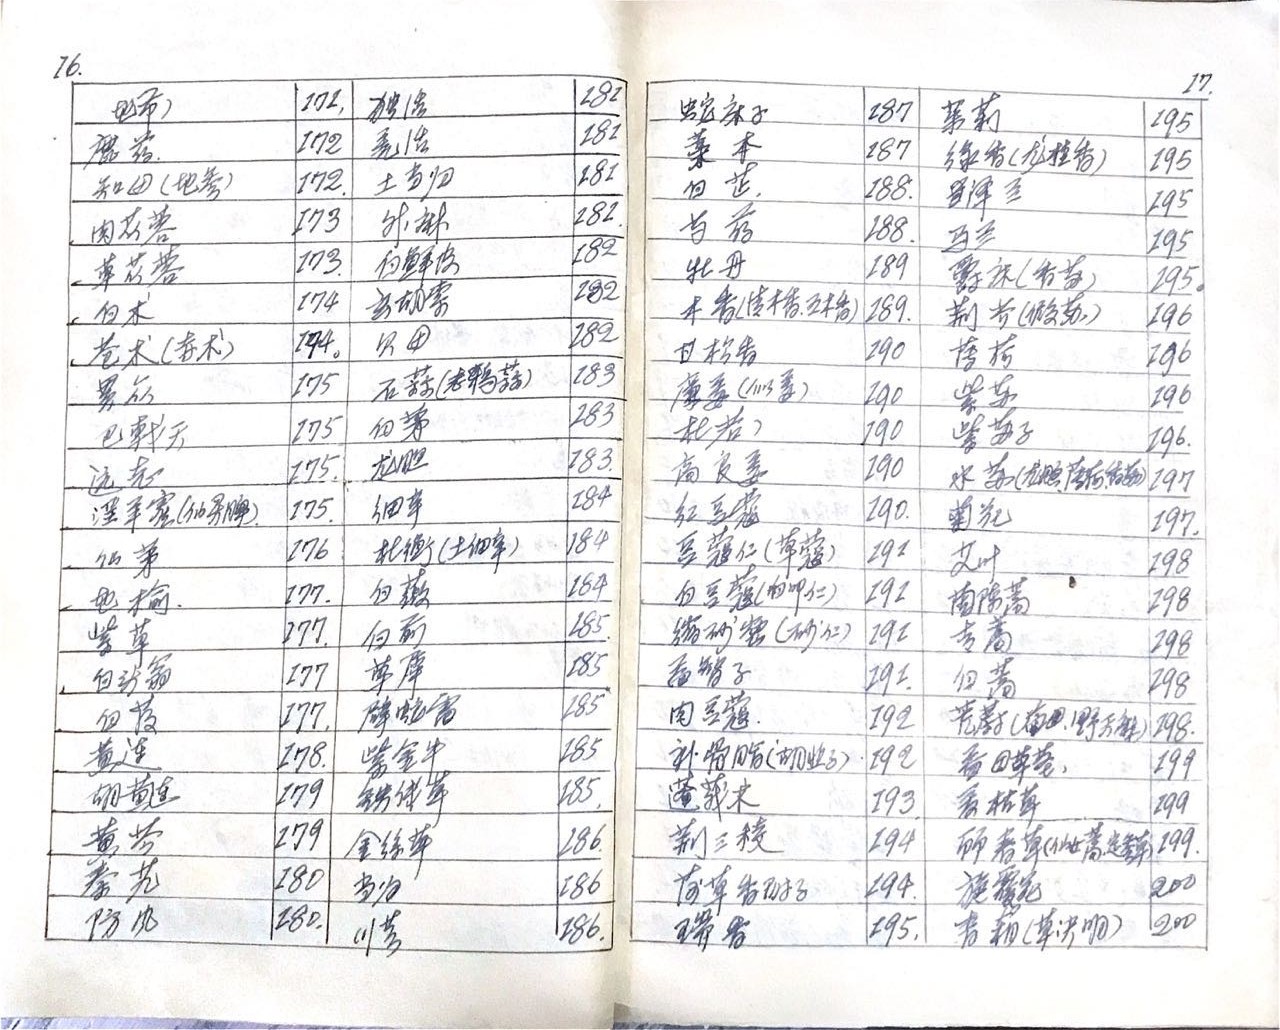 16.
171. 独活 181
172 羌活 181
知母(地参) 172. 土当归 181
肉苁蓉 173 181.
草苁蓉 173. 白鲜皮 182
白术 174 玄胡索 182
苍术(赤术) 174. 贝母 182
175 石蒜(老鸦蒜) 183
巴戟天 175 白茅 183
远志 175. 龙胆 183.
淫羊藿(仙灵脾). 175. 细辛 184
仙茅 176 杜衡(土细辛) 184
地榆. 177. 白薇 184
紫草 177. 白前 185
白头翁 177 185
白芨 177. 185
黄连 178. 紫金牛 185
胡黄连 179 185.
黄芩 179 金丝草 186.
秦艽 180 当归 186
防风 180. 川芎 186.
17.
蛇床子 187 茉莉 195
藁本 187 195
白芷. 188. 泽兰 195
芍药 188. 马兰 195
牡丹 189 爵床(香苏) 195.
木香(青木香.五木香) 189. 荆芥(假苏) 196
甘松香 190 薄荷 196
190 紫苏 196
杜若 190 紫苏子 196.
高良姜 190 水苏(龙脑薄荷) 197
红豆蔻 190. 菊花 197.
豆蔻仁(草蔻) 191 艾叶 198
白豆蔻 191 茵陈蒿 198
缩砂蜜(砂仁) 191 青蒿 198
益智子 191. 白蒿 198
肉豆蔻. 192 茺蔚(益母.野天麻) 198.
补骨脂(胡韭子) 192 199
蓬莪术 193 夏枯草 199
荆三棱 194 199.
莎草香附子 194. 旋覆花 200
瑞香 195. 青葙(草决明) 200